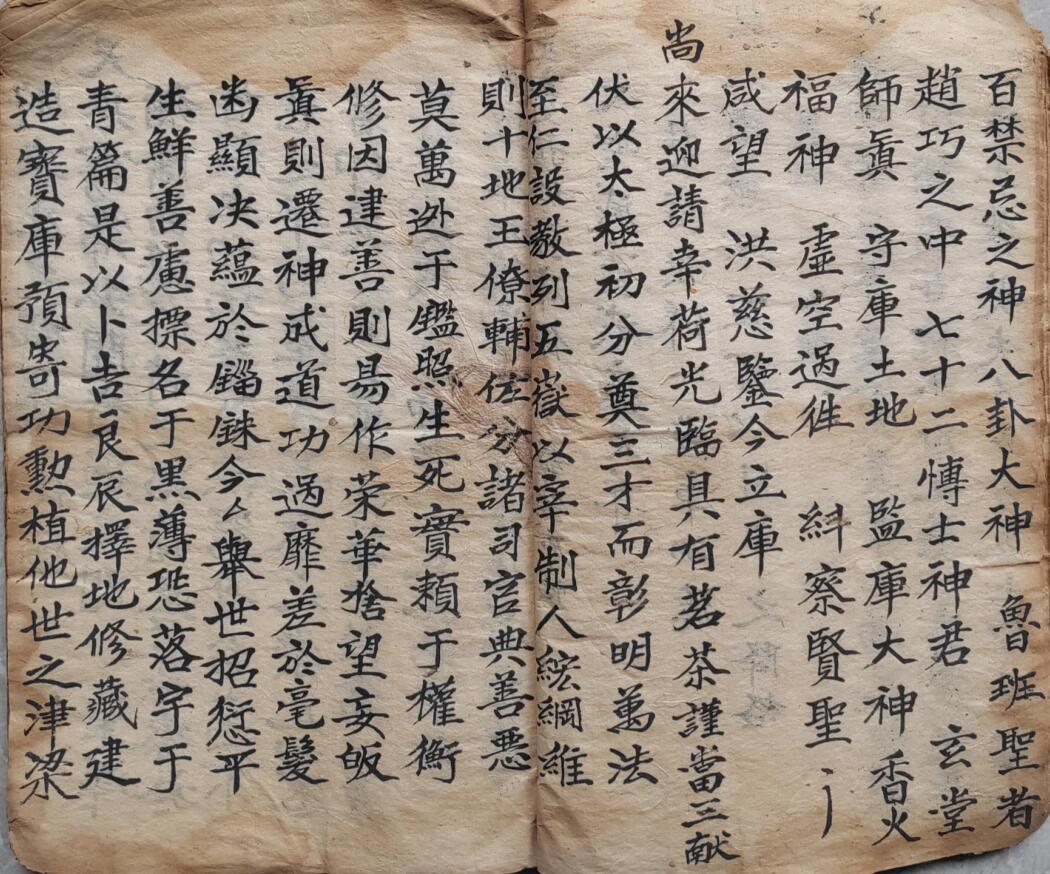 百禁忌之神 八卦大神 魯班聖者
趙巧之中 七十二愽士神君 玄堂
師眞 守庫土地 監庫大神 香火
福神 虛空過徃 紏察賢聖
咸望 洪慈鑒今立庫
尚來迎請幸荷光臨具有茗茶謹當三献
伏以太極初分奠三才而彰明萬法
至仁設教列五嶽以宰制人綋綱維
則十地王僚輔佐分諸司官典善悪
莫萬迯于鑑照生死實頼于權衡
修因建善則易作荣華捨望妄皈
眞則遷神成道功過靡差於毫髮
凾顯决蘊於錙銖今厶舉世招愆平
生鮮善慮摽名于黒薄恐落字于
青篇是以卜吉良辰擇地修藏建
造寳庫預寄功勲植他世之津梁